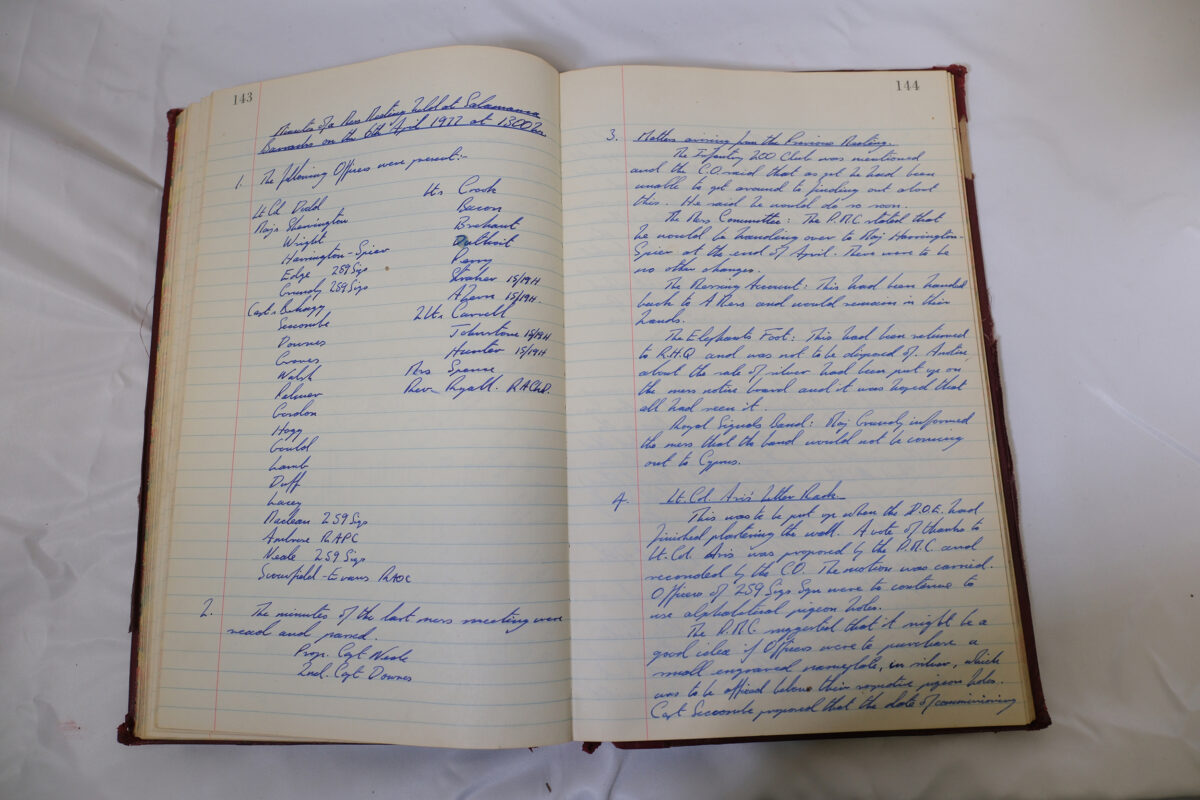 143
Minutes of a Mess Meeting held at Salamanca
Barracks on the 6th April 1977 at 1300 hrs
1. The following Officers were present:-
Lt Col Dodd
Majs Sherrington
Wright
Harrington-Spier
Edge 259 Sigs
Grundy 259 Sigs
Capts Behagg
Seccombe
Downes
Graves
Walsh
Palmer
Gordon
Hogg
Gould
Lamb
Duff
Lacey
Maclean 259 Sigs
Ambrose RAPC
Neale 259 Sigs
-Evans RAOC
Lts Crook
Bacon
Brehaut
Perry
Straker 15/19H
Ahern 15/19H
2Lts Carvell
Johnstone 15/19H
Hunter 15/19H
Mrs Spence
Rev. Ryall. RAChD.
2. The minutes of the last mess meeting were
read and passed.
Prop. Capt Neale
2nd. Capt Downes
144
3. Matters arising from the Previous Meeting.
The Infantry 200 Club was mentioned
and the C.O. said that as yet he had been
unable to get around to finding out about
this. He said he would do so soon.
The Mess Committee: The P.M.C stated that
he would be handing over to Maj Harrington-
Spier at the end of April. There were to be
no other changes.
The Messing Account: This had been handed
back to A Mess and would remain in their
hands.
The Elephants Foot: This had been returned
to R.H.Q and was not to be disposed of. A notice
about the sale of silver had been put up on
the mess notice board and it was hoped that
all had seen it.
Royal Signals Band: Maj Grundy informed
the mess that the band would not be coming
out to Cyprus.
4. Lt. Col. Aris' Letter Rack
This was to be put up when the D.O.E. had
finished plastering the wall. A vote of thanks to
Lt. Col. Aris was proposed by the P.M.C. and
seconded by the C.O. The motion was carried.
Officers of 259 Sigs Sqn were to continue to
use alphabetical pigeon holes.
The P.M.C suggested that it might be a
good idea if Officers were to purchase a
small engraved nameplate, in silver, which
was to be affixed below their respective pigeon holes.
Capt Seccombe proposed that the date of commissioning